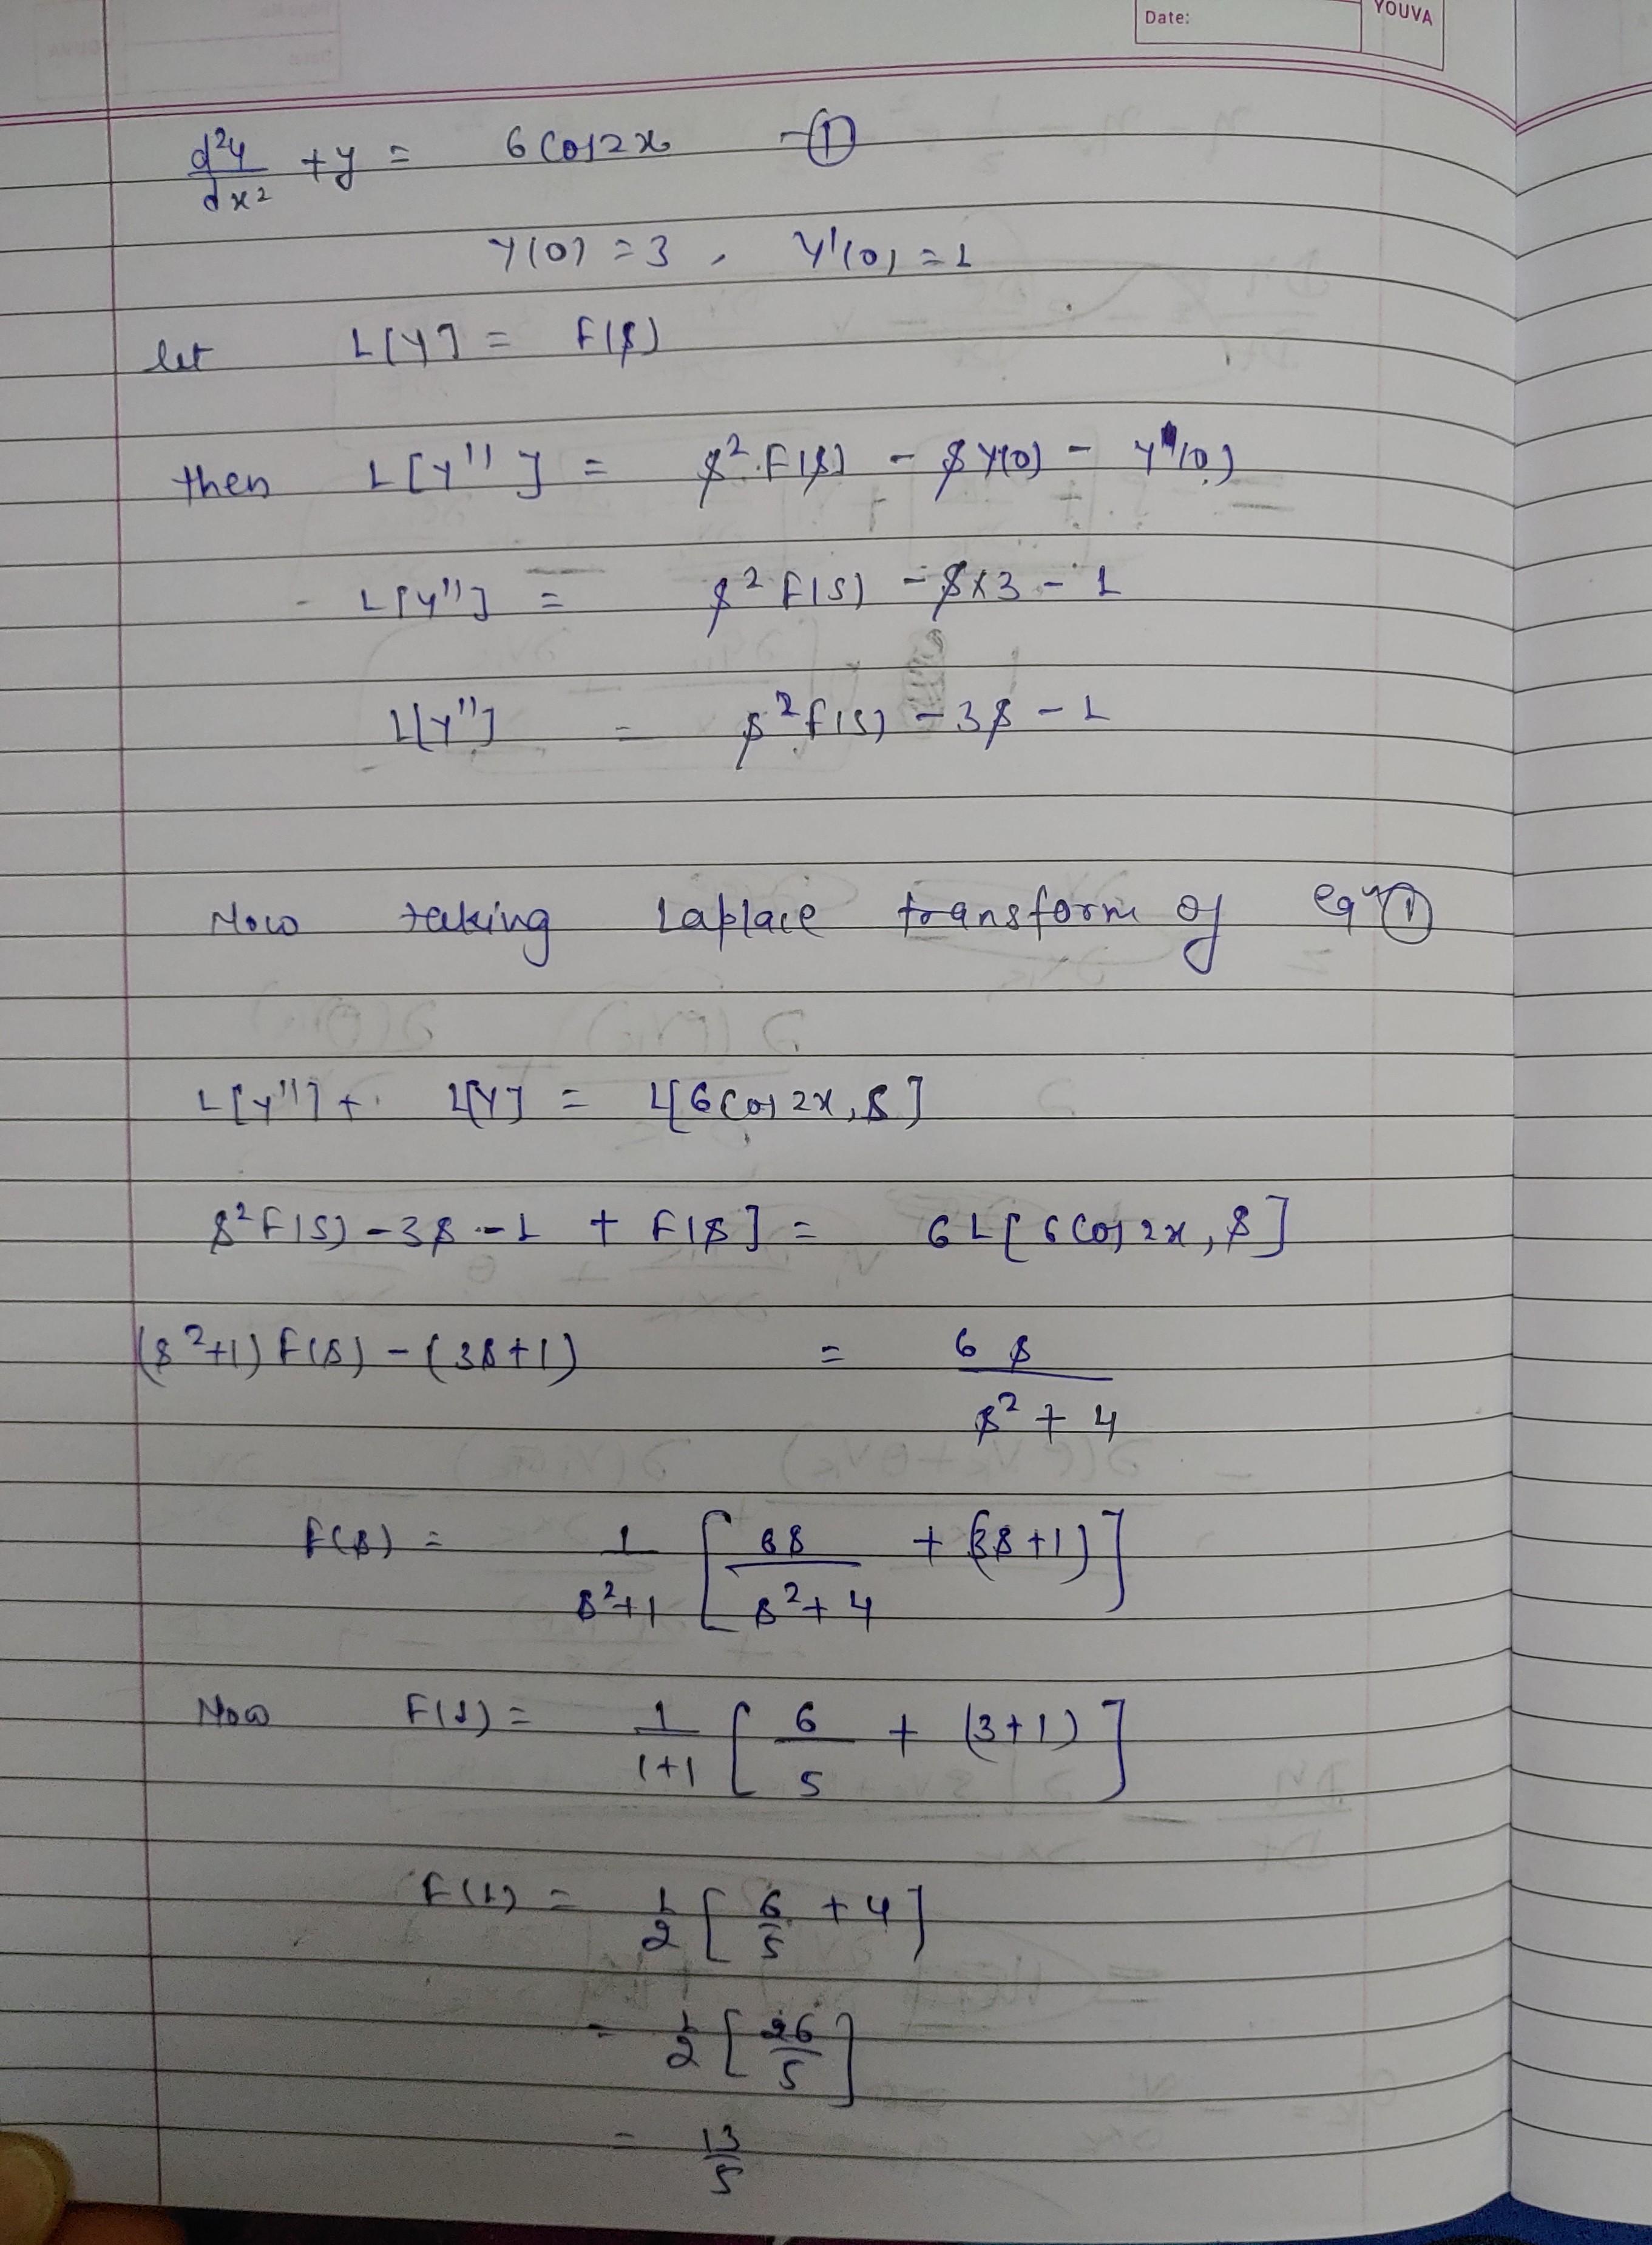 Date:
YOUVA
d²y/dx² + y = 6 Cos2x —①
Y(0) = 3 , Y'(0) = 1
let L[Y] = F(s)
then L[Y''] = s².F(s) - sY(0) - Y'(0)
L[Y''] = s² F(s) - s×3 - 1
L[Y''] = s² F(s) - 3s - 1
Now taking Laplace transform of eqⁿ ①
L[Y''] + L[Y] = L[6Cos 2x, s]
s² F(s) - 3s - 1 + F(s] = 6 L[6Cos 2x, s]
(s²+1) F(s) - (3s+1) = 6 s / s² + 4
F(s) = 1/s²+1 [6s/s²+4 + (3s+1)]
Now F(1) = 1/1+1 [6/5 + (3+1)]
F(1) = 1/2 [6/5 + 4]
= 1/2 [26/5]
= 13/5